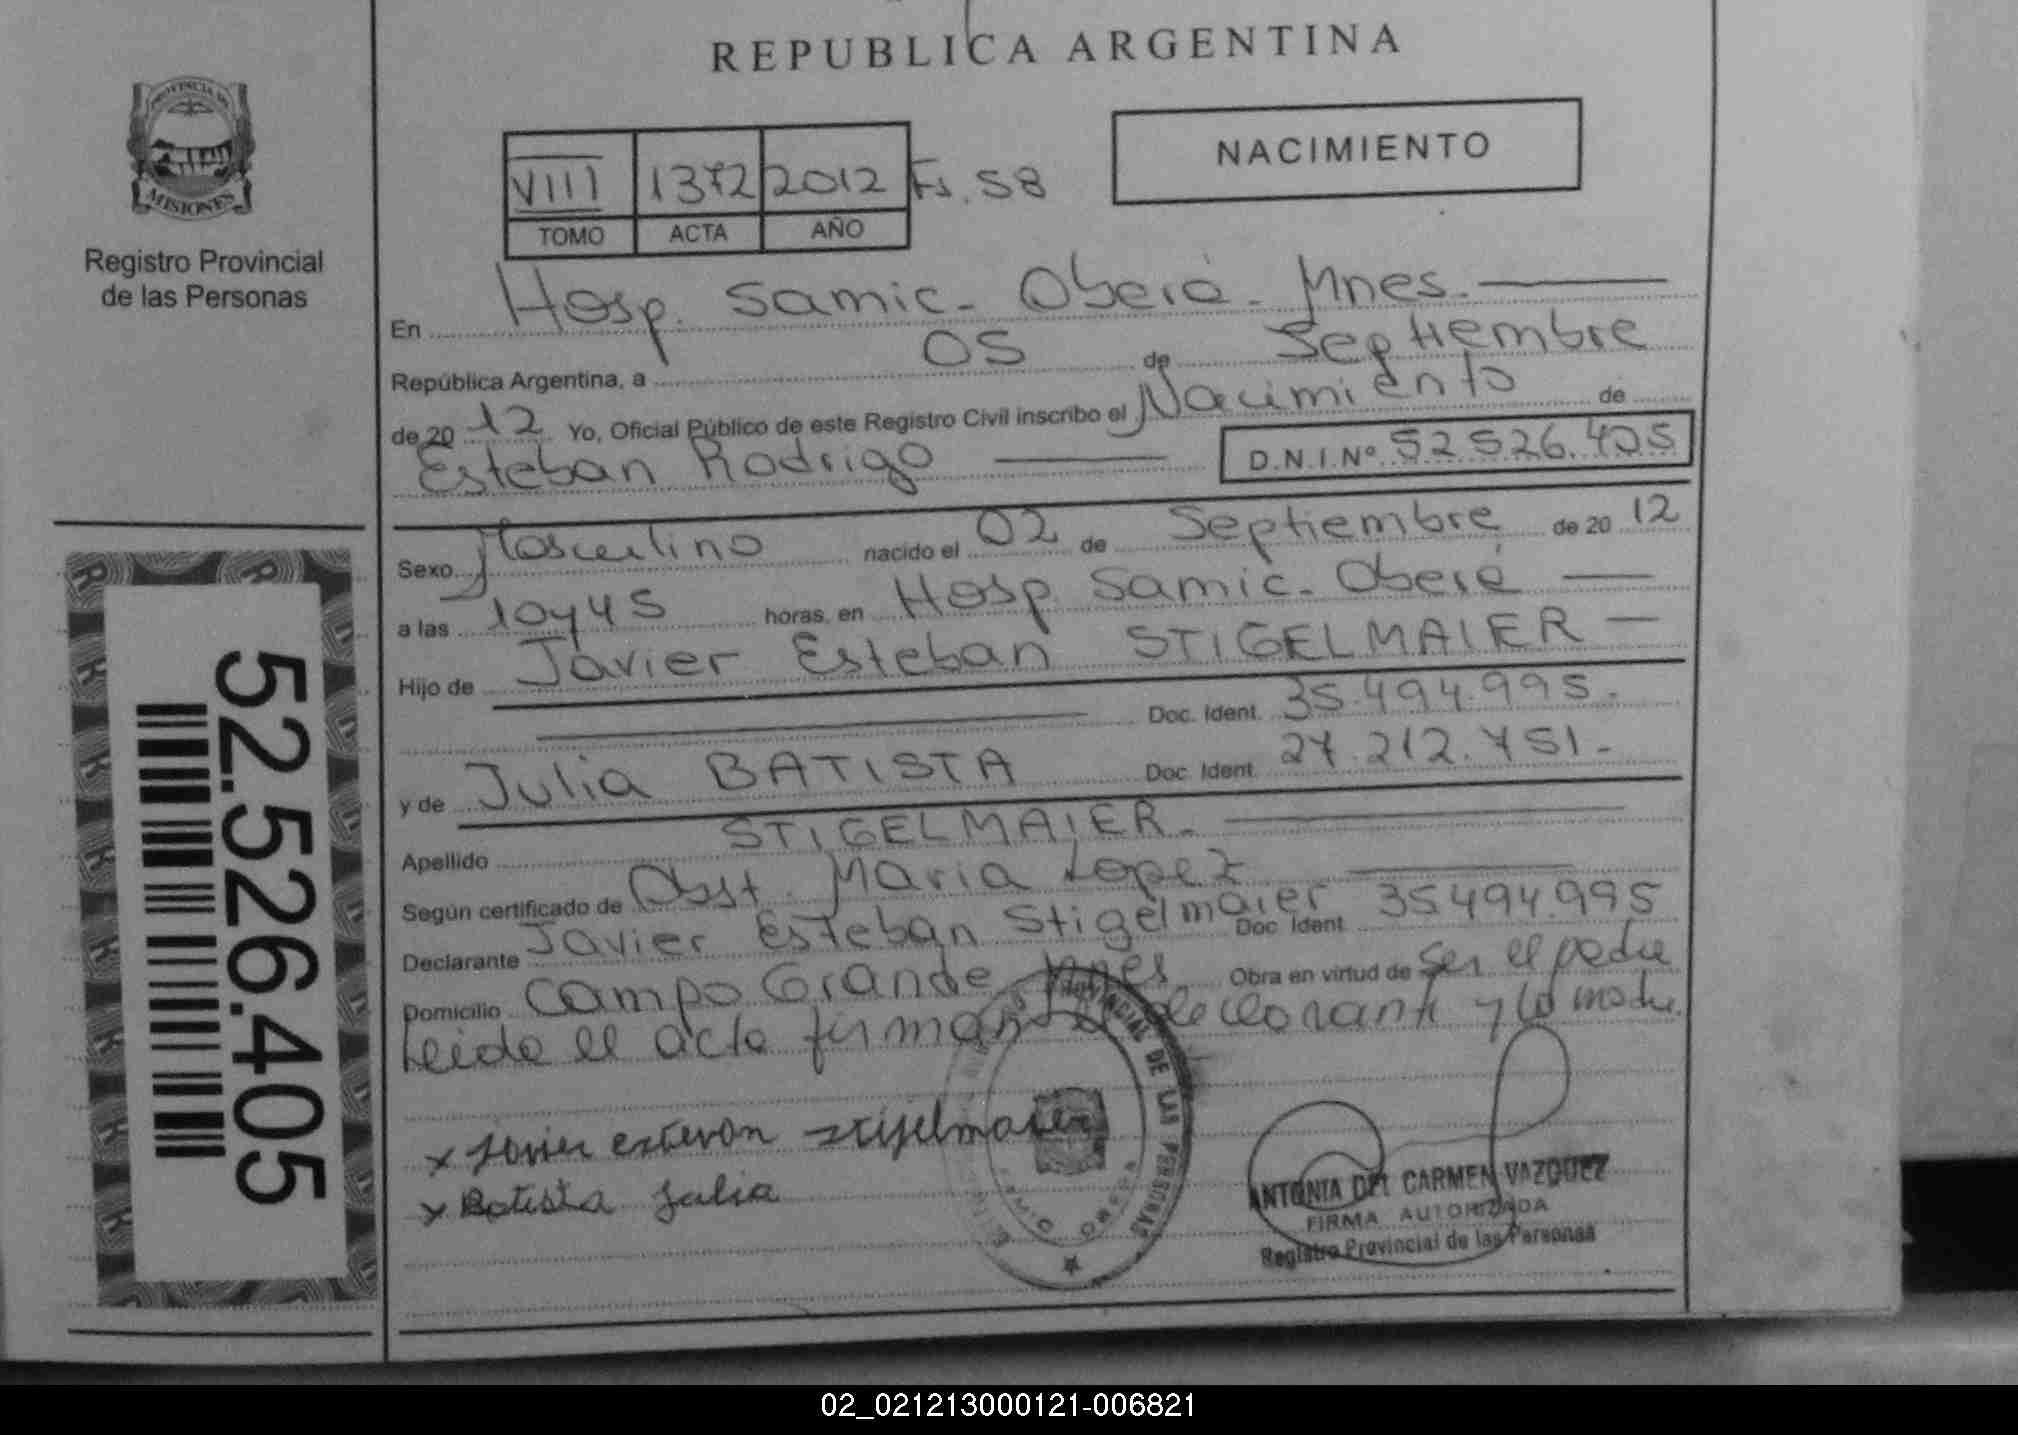 REPUBLICA ARGENTINA
PROVINCIA DE
MISIONES
Registro Provincial
de las Personas
NACIMIENTO
VIII 1372 2012 Fs. 58
TOMO ACTA AÑO
En Hosp. Samic - Oberá - Mnes.
República Argentina, a 05 de Septiembre
de 20 12 Yo, Oficial Público de este Registro Civil inscribo el Nacimiento de
Esteban Rodrigo D.N.I.Nº 52526.405
Sexo Masculino nacido el 02 de Septiembre de 20 12
a las 10y45 horas, en Hosp. Samic - Oberá
Hijo de Javier Esteban STIGELMAIER
Doc. Ident. 35.494.995.
y de Julia BATISTA Doc. Ident. 27.212.751.-
Apellido STIGELMAIER.
Según certificado de Obst. Maria Lopez
Declarante Javier Esteban Stigelmaier Doc. Ident. 35494.995
Domicilio Campo Grande Mnes Obra en virtud de ser el padre
Leida el acta firman el declarante y la madre.
x Javier estevan stijelmaier
x Batista Julia
PROVINCIAL DE LAS PERSONAS
ANTONIA DEL CARMEN VAZQUEZ
FIRMA AUTORIZADA
Registro Provincial de las Personas
52.526.405
02_021213000121-006821